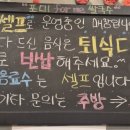 셀프로 운영중인 매장입니다
다 드신 음식은 퇴식구
로 반납 해주세요~
음료수는 셀프입니다
기타 문의는 주방 →